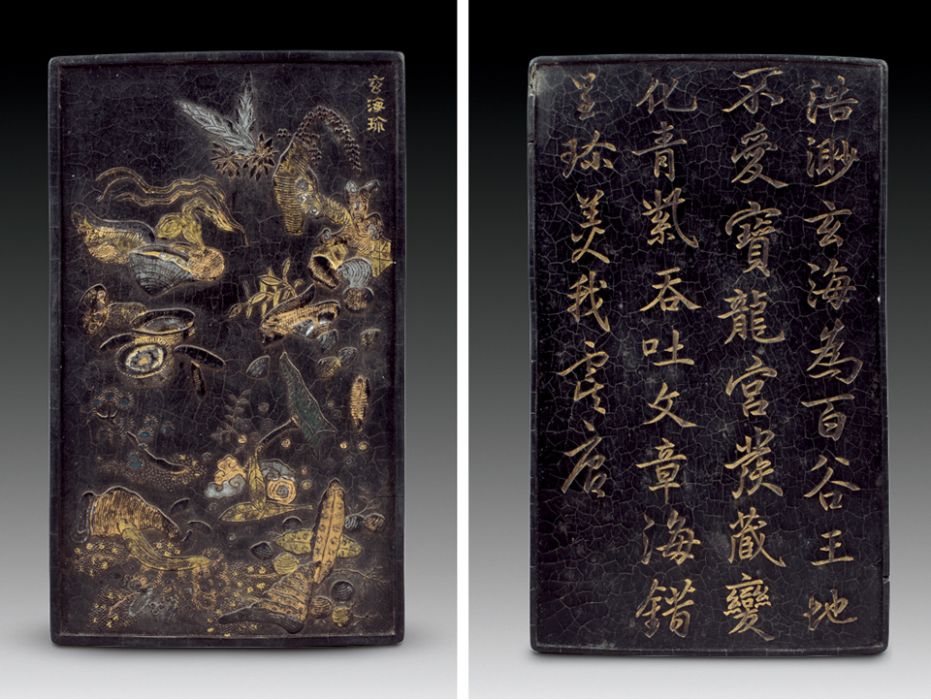 玄海珍
浩渺玄海為百谷王地
不愛寶龍宮發藏變
化青紫吞吐文章海錯
呈珎美我虞唐